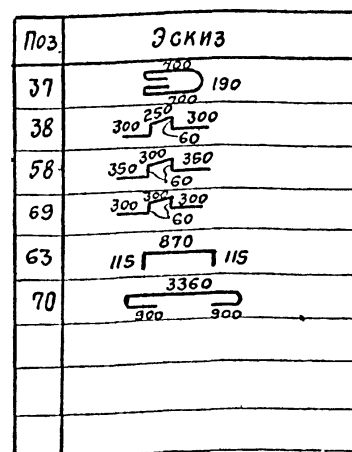 Поз. Эскиз
37 700 190 700
38 300 250 300 60
58 350 300 360 60
69 300 300 300 60
63 115 870 115
70 3360 900 900